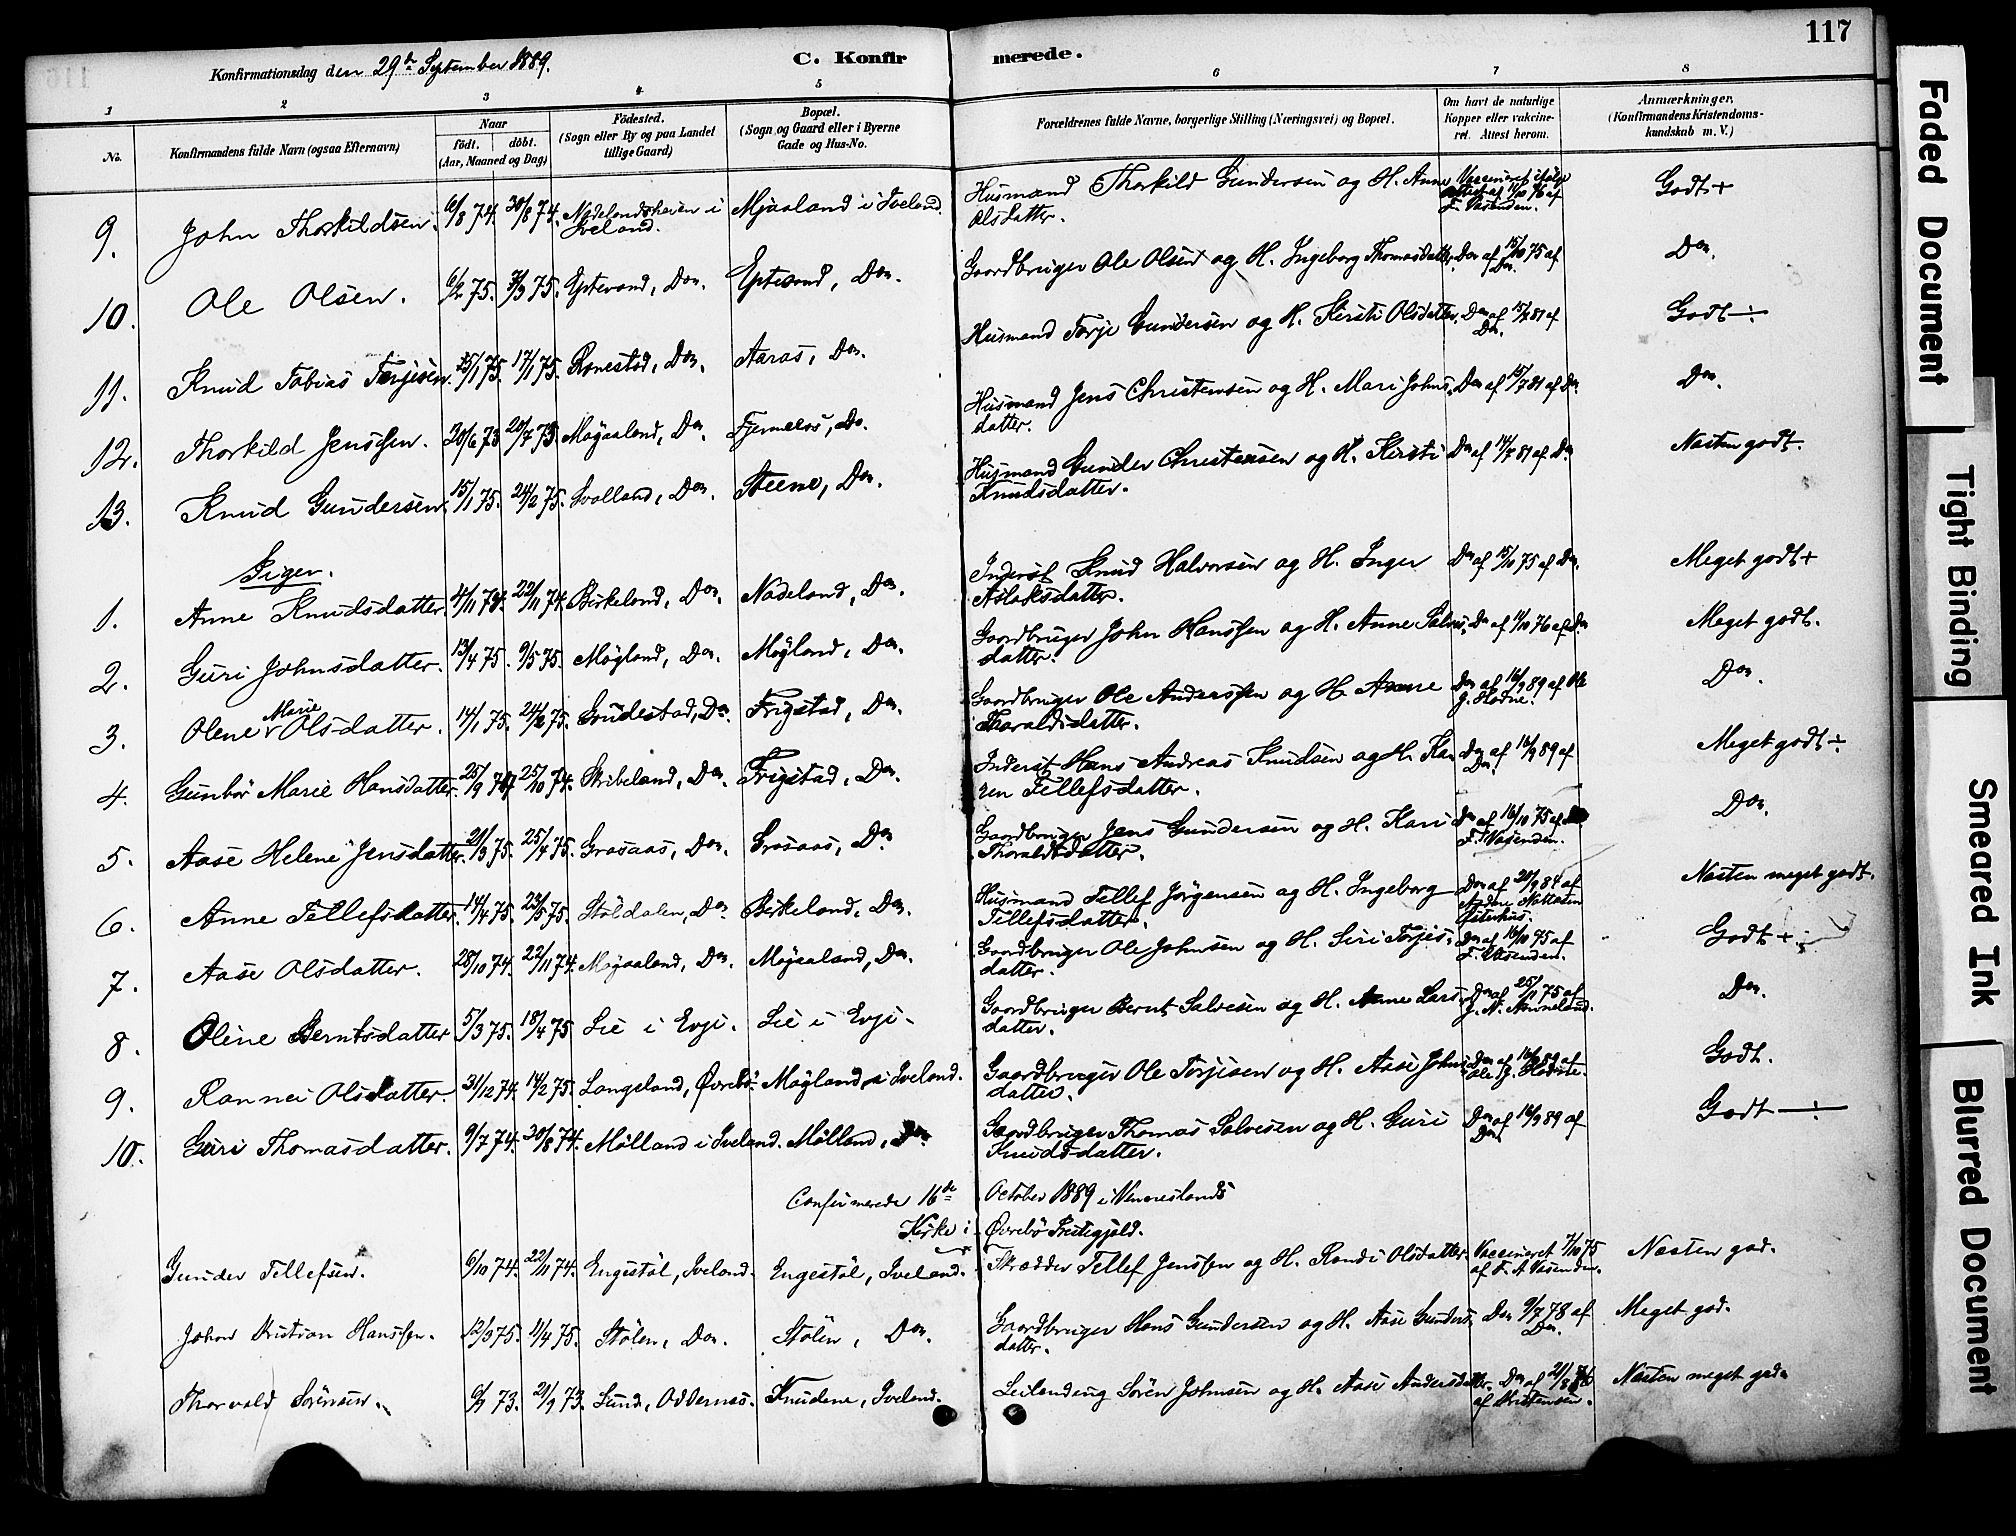 117
Konfirmationsdag den 29de September 1889.
C. Konfir merede.
1 2 3 4 5 6 7 8
No. Konfirmandens fulde Navn (ogsaa Efternavn) Naar födt. döbt. (Aar, Maaned og Dag) Födested. (Sogn eller By og paa Landet tillige Gaard) Bopæl. (Sogn og Gaard eller i Byerne Gade og Hus-No. Forældrenes fulde Navne, borgerlige Stilling (Næringsvei) og Bopæl. Om havt de naturlige Kopper eller vaccineret. Attest herom. Anmærkninger. (Konfirmandens Kristendomskundskab m. V.)
9. John Thorkildsen. 6/8 74. 30/8 74. i Iveland. Mjaaland i Iveland. Husmand Thorkild Gundersen og H. Anne Olsdatter. Vaccineret ifølge attest af 11/10 76 af F. Vasenden. Godt +
10. Ole Olsen. 6/2 75. 7/3 75. Eptevand, Do. Eptevand, Do. Gaardbruger Ole Olsen og H. Ingeborg Thomasdatter. Do af 15/10 75 af Do. Do.
11. Knud Tobias Terjesen. 15/1 75. 17/1 75. Ronestad, Do. Aaras, Do. Husmand Terje Gundersen og H. Kirsti Olsdatter. Do af 15/7 81 af Do. Godt ÷
12. Thorkild Jenssen. 30/6 73 20/7 73. Mogaaland, Do. Fjermeros, Do. Husmand Jens Christensen og H. Mari Johnsdatter. Do af 15/7 81 af Do. Do.
13. Knud Gundersen. 15/1 75. 24/2 75. Ivolland, Do. Steene, Do. Husmand Gunder Christensen og H. Kirsti Knudsdatter. Do af 14/7 81 af Do. Næsten godt.
Piger.
1. Anne Knudsdatter. 4/11 74. 22/11 74. Birkeland, Do. Nodeland, Do. Inderst Knud Halvorsen og H. Inger Aslaksdatter. Do af 15/10 75 af Do. Meget godt +
2. Guri Johnsdatter. 13/4 75. 9/5 75. Møgland, Do. Møgland, Do. Gaardbruger John Hanssen og H. Anne Salvesdatter. Do af 11/10 76 af Do. Meget godt.
3. Olene Marie Olsdatter. 14/1 75. 24/2 75. Gudestad, Do. Frigstad, Do. Gaardbruger Ole Anderssen og H. Anne Tharaldsdatter. Do af 16/9 89 af Ole J. Hodne. Do.
4. Gunbør Marie Hansdatter. 25/9 74 25/10 74. Skribeland, Do. Frigstad, Do. Inderst Hans Andreas Knudsen og H. Karen Tellefsdatter. Do af 16/9 89 af Do. Meget godt ÷
5. Aase Helene Jensdatter. 21/3 75. 25/4 75. Grosaas, Do. Grosaas, Do. Gaardbruger Jens Gundersen og H. Kari Tharaldsdatter. Do af 16/10 75 af F. Vasenden. Do.
6. Anne Tellefsdatter. 14/4 75. 23/5 75. Støldalen, Do. Birkeland, Do. Husmand Tellef Jørgensen og H. Ingeborg Tellefsdatter. Do af 20/9 84 af Næsten meget godt.
7. Aase Olsdatter. 28/10 74. 22/11 74. Mogaaland, Do. Mogaaland, Do. Gaardbruger Ole Johnsen og H. Siri Terjesdatter. Do af 16/10 75 af F. Vasenden. Godt +
8. Oline Berntsdatter 5/3 75. 18/4 75 Lie i Evje. Lie i Evje. Gaardbruger Bernt Salvesen og H. Anne Larsdatter. Do af 25/11 75 af Do.
9. Rannei Olsdatter. 31/12 74. 14/2 75. Langeland, Øvrebø. Møgland i Iveland. Gaardbruger Ole Terjesen og H. Aase Johnsdatter. Do af 16/9 89 af Ole J. Hodne. Godt.
10. Guri Thomasdatter. 9/7 74. 30/8 74. Mølland i Iveland. Mølland, Do. Gaardbruger Thomas Salvesen og H. Guri Knudsdatter. Do af 16/9 89 af Do. Godt ÷
Confirmerede 16de October 1889 i Venneslands
Kirke i Øvrebö Prestegjeld.
Gunder Tellefsen. 6/10 74. 22/11 74. Engestøl, Iveland. Engestøl, Iveland. Skrædder Tellef Jenssen og H. Randi Olsdatter. Vaccineret 7/10 75 af F. A Vasenden. Næsten god.
Johan Kristian Hanssen. 12/3 75. 11/4 75. Stølen, Do. Stølen, Do. Gaardbruger Hans Gundersen og H. Aase Gundersdatter. Do 9/7 78 af Do. Meget god.
Thorvald Sørensen. 73. 21/9 73. Lund, Oddernes. Knudene, Iveland. Leilending Søren Johnsen og H. Aase Andersdatter. Do af af Kristensen. Næsten meget god.
Faded Document
Tight Binding
Smeared Ink
Blurred Document